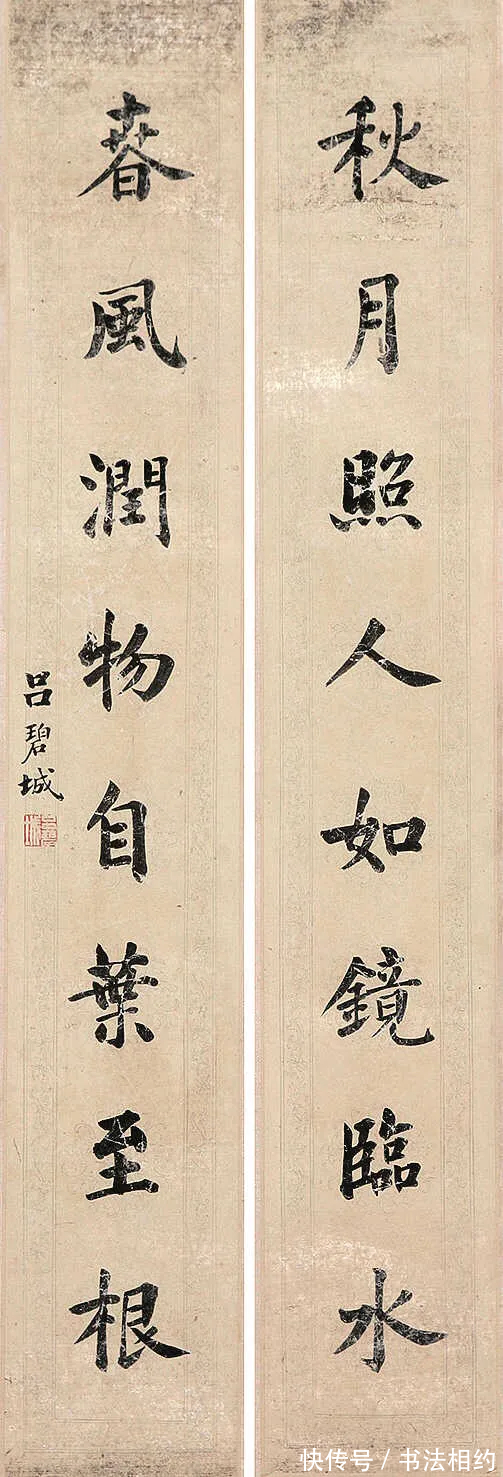 秋月照人如鏡臨水
春風潤物自葉至根
吕碧城
快传号 / 书法相约